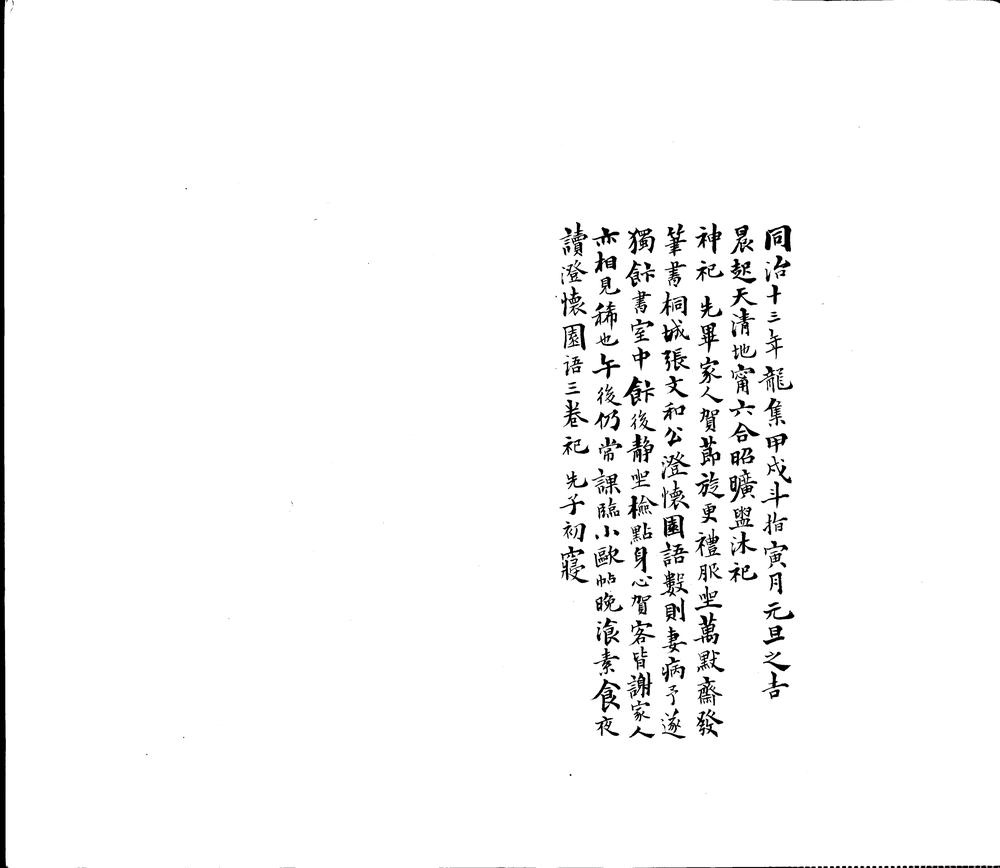 同治十三年龍集甲戌斗指寅月元旦之吉
晨起天清地甯六合昭曠盥沐祀
神祀 先畢家人賀節旋更禮服坐萬默齋發
筆書桐城張文和公澄懷園語數則妻病予遂
獨飰書室中飰後靜坐檢點身心賀客皆謝家人
亦相見稀也午後仍常課臨小歐帖晚飡素食夜
讀澄懷園語三卷祀 先子初寢